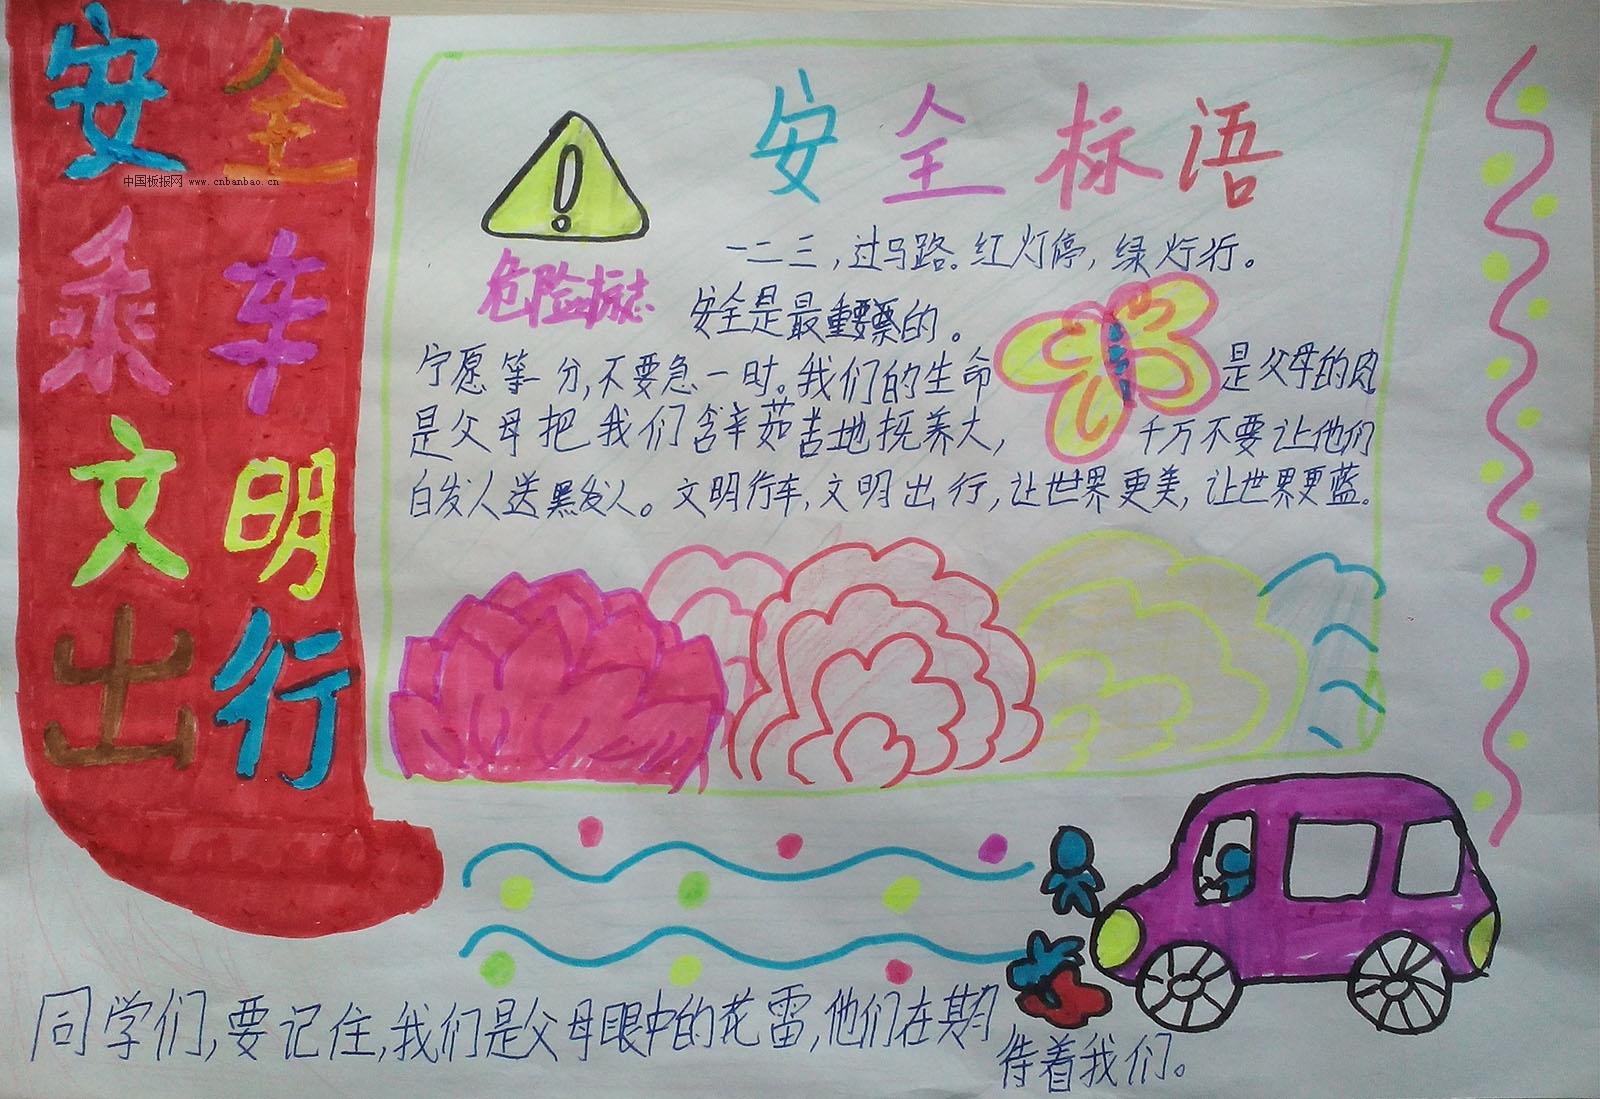 安全
乘车
文明
出行
中国板报网 www.cnbanbao.cn
安全标语
危险标志
一二三,过马路。红灯停,绿灯行。
安全是最重要的。
宁愿等一分,不要急一时。我们的生命是父母的肉
是父母把我们含辛茹苦地抚养大,千万不要让他们
白发人送黑发人。文明行车,文明出行,让世界更美,让世界更蓝。
同学们,要记住,我们是父母眼中的花雷,他们在期
待着我们。